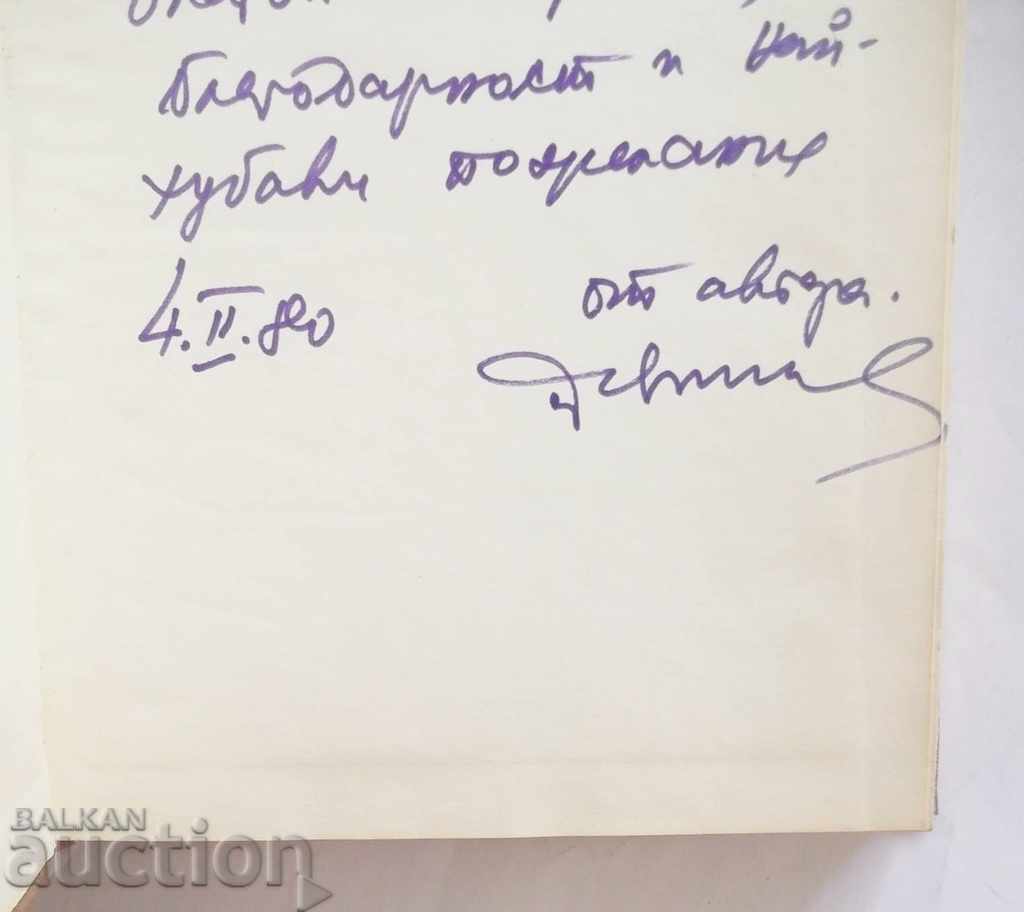 благодарност и най-
хубави пожелания
4.II.80
от автора.
BALKAN
auction